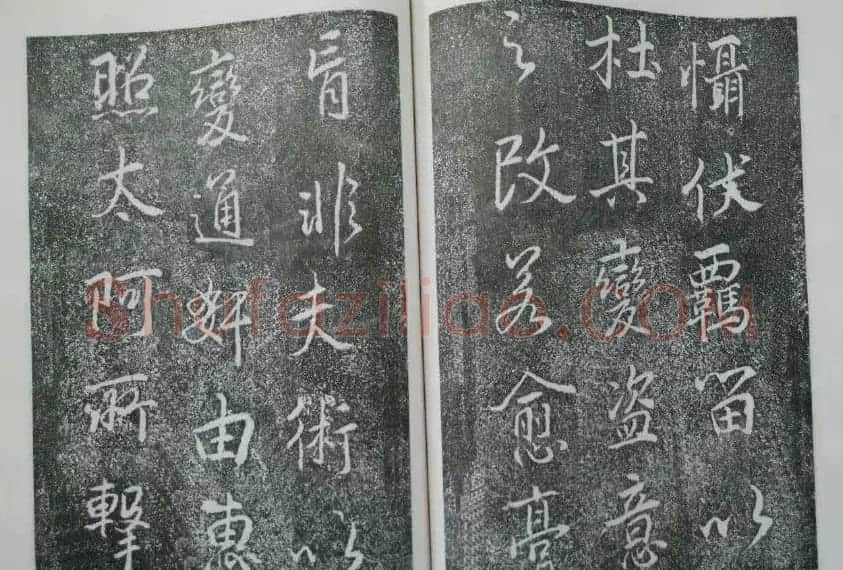 懾伏羈留以
杜其變盜意
之改若愈膏
肓非夫術以
變通奸由惠
照太阿所擊
Shufaziliao.COM